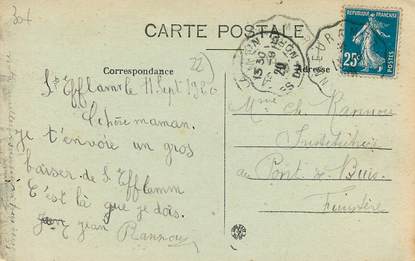 304
CARTE POSTALE
Correspondance
22
Adresse
REPUBLIQUE FRANÇAISE
25c
POSTES
St Efflam le 11 Sept 1920
Chère maman.
je t'envoie un gros
baiser de St Efflamm
C'est là que je dois.
Jean Rannou
Mme Ch. Rannou
Institutrice
au Pont de Buis
Finistère